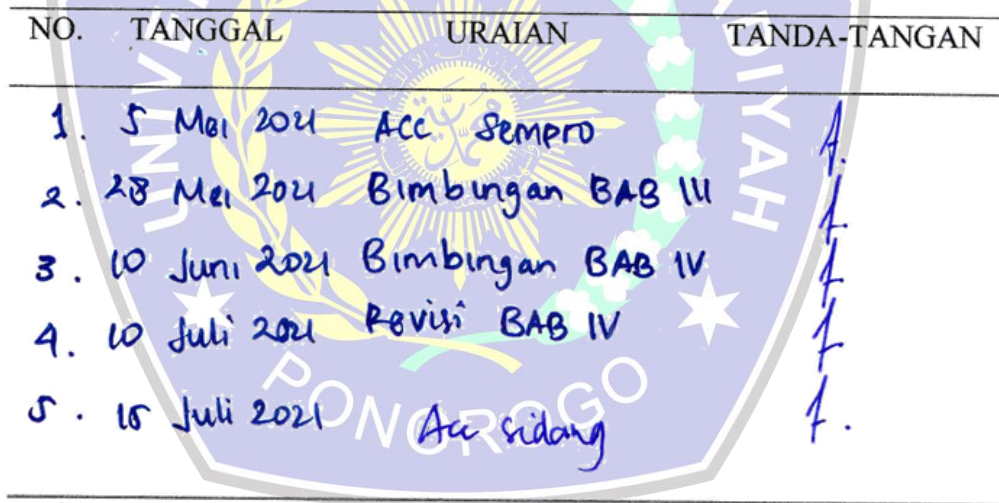 NO. TANGGAL URAIAN TANDA-TANGAN
1. 5 Mei 2021 Acc Sempro
2. 28 Mei 2021 Bimbingan BAB III
3. 10 Juni 2021 Bimbingan BAB IV
4. 10 Juli 2021 Revisi BAB IV
5. 15 Juli 2021 Acc sidang
PONOROGO